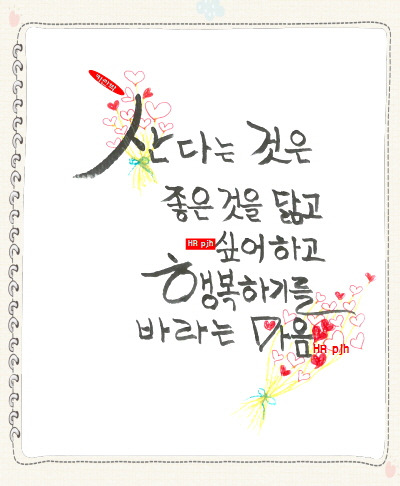 산다는 것은
좋은 것을 닮고
HR pjh 싶어하고
행복하기를
바라는 마음
HR pjh